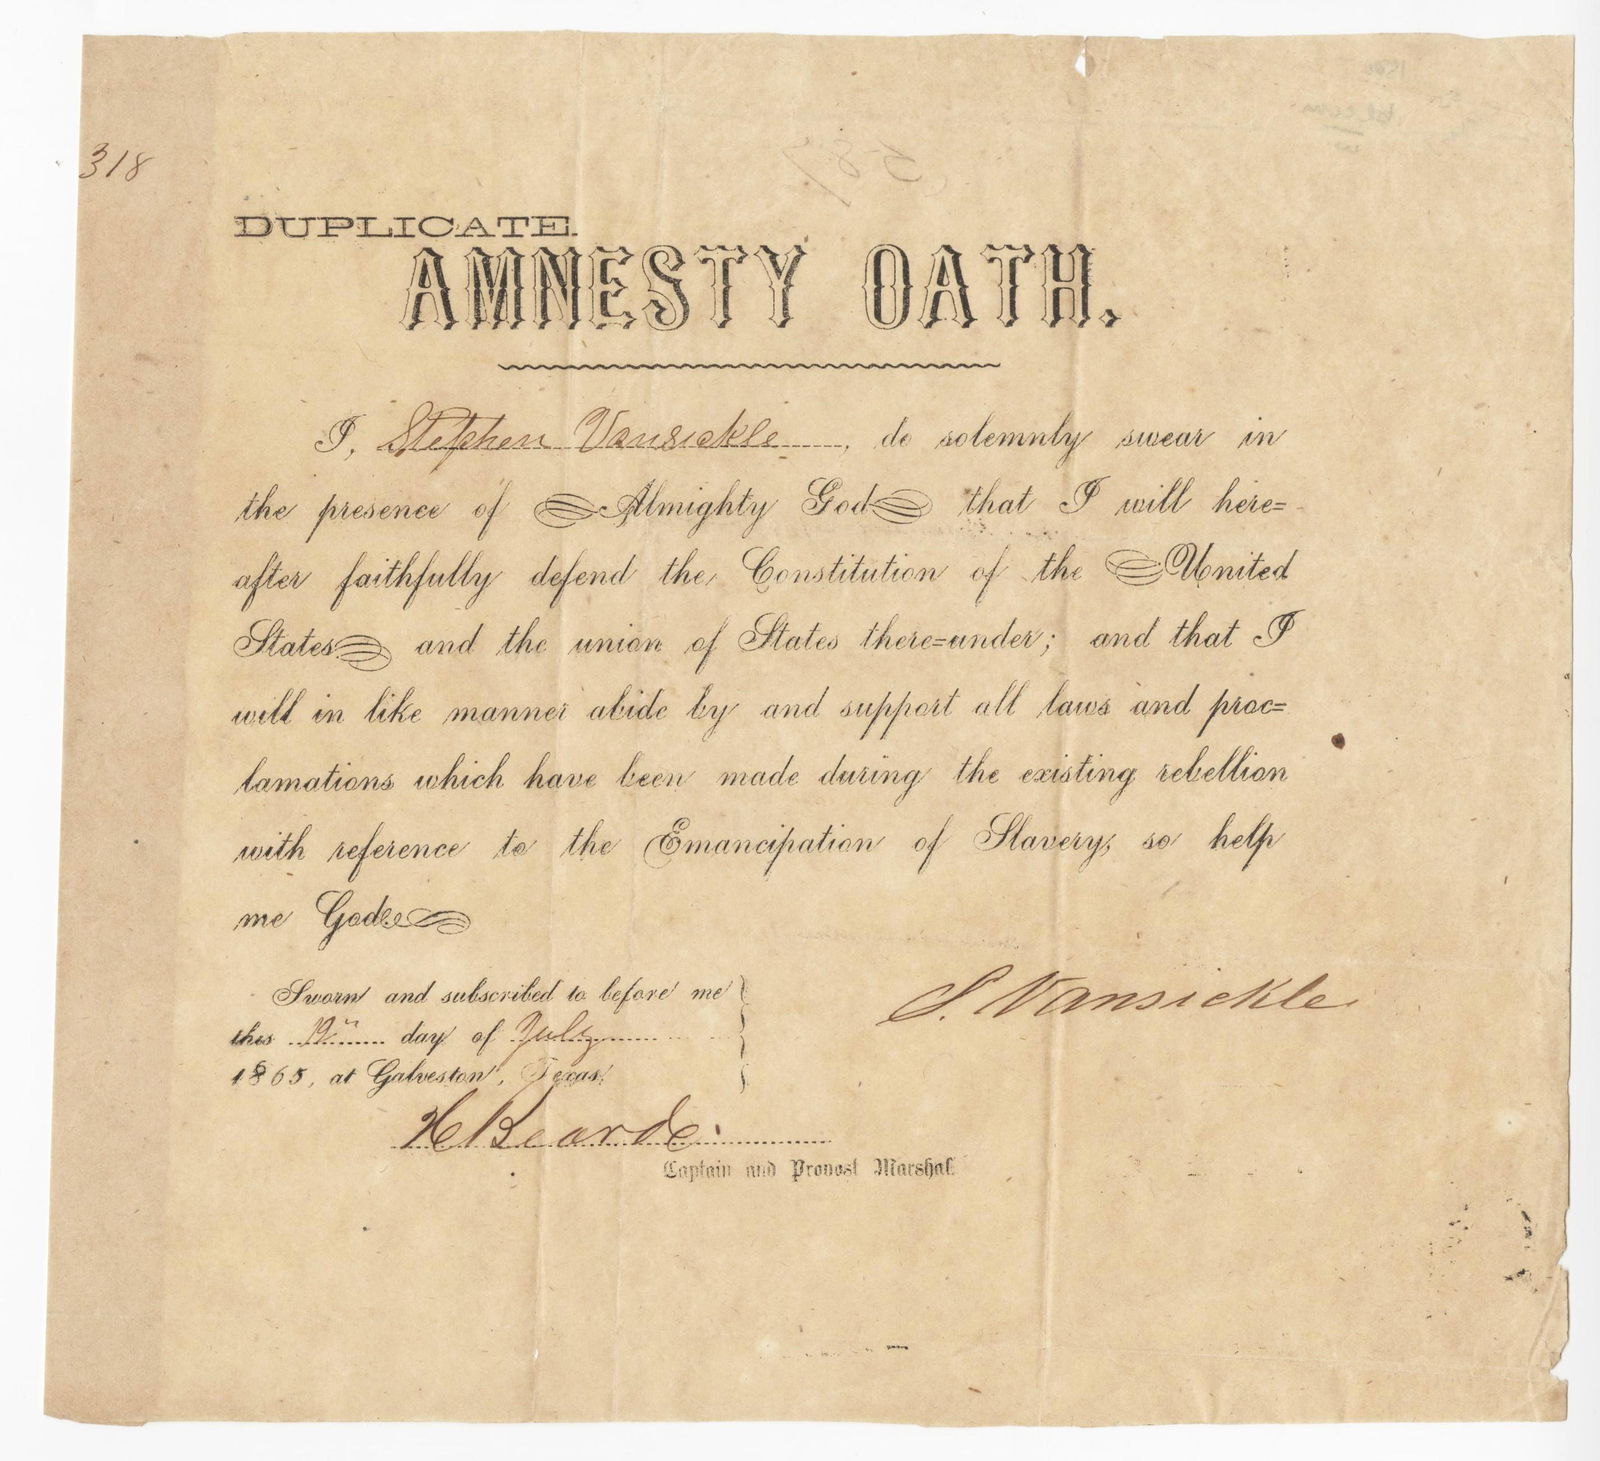 318
DUPLICATE.
AMNESTY OATH.
I, Stephen Vansickle, do solemnly swear in
the presence of Almighty God that I will here=
after faithfully defend the Constitution of the United
States and the union of States there=under; and that I
will in like manner abide by and support all laws and proc=
lamations which have been made during the existing rebellion
with reference to the Emancipation of Slavery, so help
me God
Sworn and subscribed to before me
this 19th day of July
1865, at Galveston, Texas.
S. Vansickle
H Bearde.
Captain and Provost Marshal.